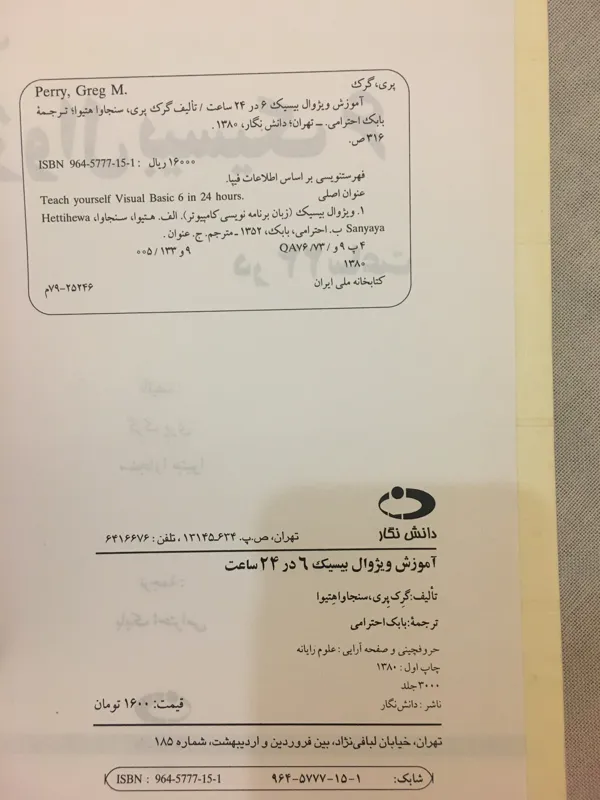 پری، گرک
Perry, Greg M.
آموزش ویژوال بیسیک ۶ در ۲۴ ساعت / تألیف گرک پری، سنجاوا هتیوا؛ ترجمهٔ
بابک احترامی. ــ تهران؛ دانش نگار، ۱۳۸۰.
۳۱۶ ص.
۱۶۰۰۰ ریال : ISBN 964-5777-15-1
فهرستنویسی بر اساس اطلاعات فیپا.
عنوان اصلی Teach yourself Visual Basic 6 in 24 hours.
۱. ویژوال بیسیک (زبان برنامه نویسی کامپیوتر). الف. هتیوا، سنجاوا، Hettihewa
Sanyaya ب. احترامی، بابک، ۱۳۵۲ ـ مترجم. ج. عنوان .
۴ پ ۹ و / ۷۳/ QA۷۶ ۹ و ۱۳۳ / ۰۰۵
۱۳۸۰
کتابخانه ملی ایران ۲۵۲۴۶-۷۹م
دانش نگار
تهران، ص.پ. ۶۳۴-۱۳۱۴۵، تلفن : ۶۴۱۶۶۷۶
آموزش ویژوال بیسیک ۶ در ۲۴ ساعت
تألیف: گرک پری، سنجاوا هتیوا
ترجمهٔ: بابک احترامی
حروفچینی و صفحه آرایی : علوم رایانه
چاپ اول : ۱۳۸۰
۳۰۰۰ جلد
ناشر : دانش‌نگار
قیمت: ۱۶۰۰ تومان
تهران، خیابان لبافی‌نژاد، بین فروردین و اردیبهشت، شماره ۱۸۵
شابک: ۱-۱۵-۵۷۷۷-۹۶۴ ISBN : 964-5777-15-1